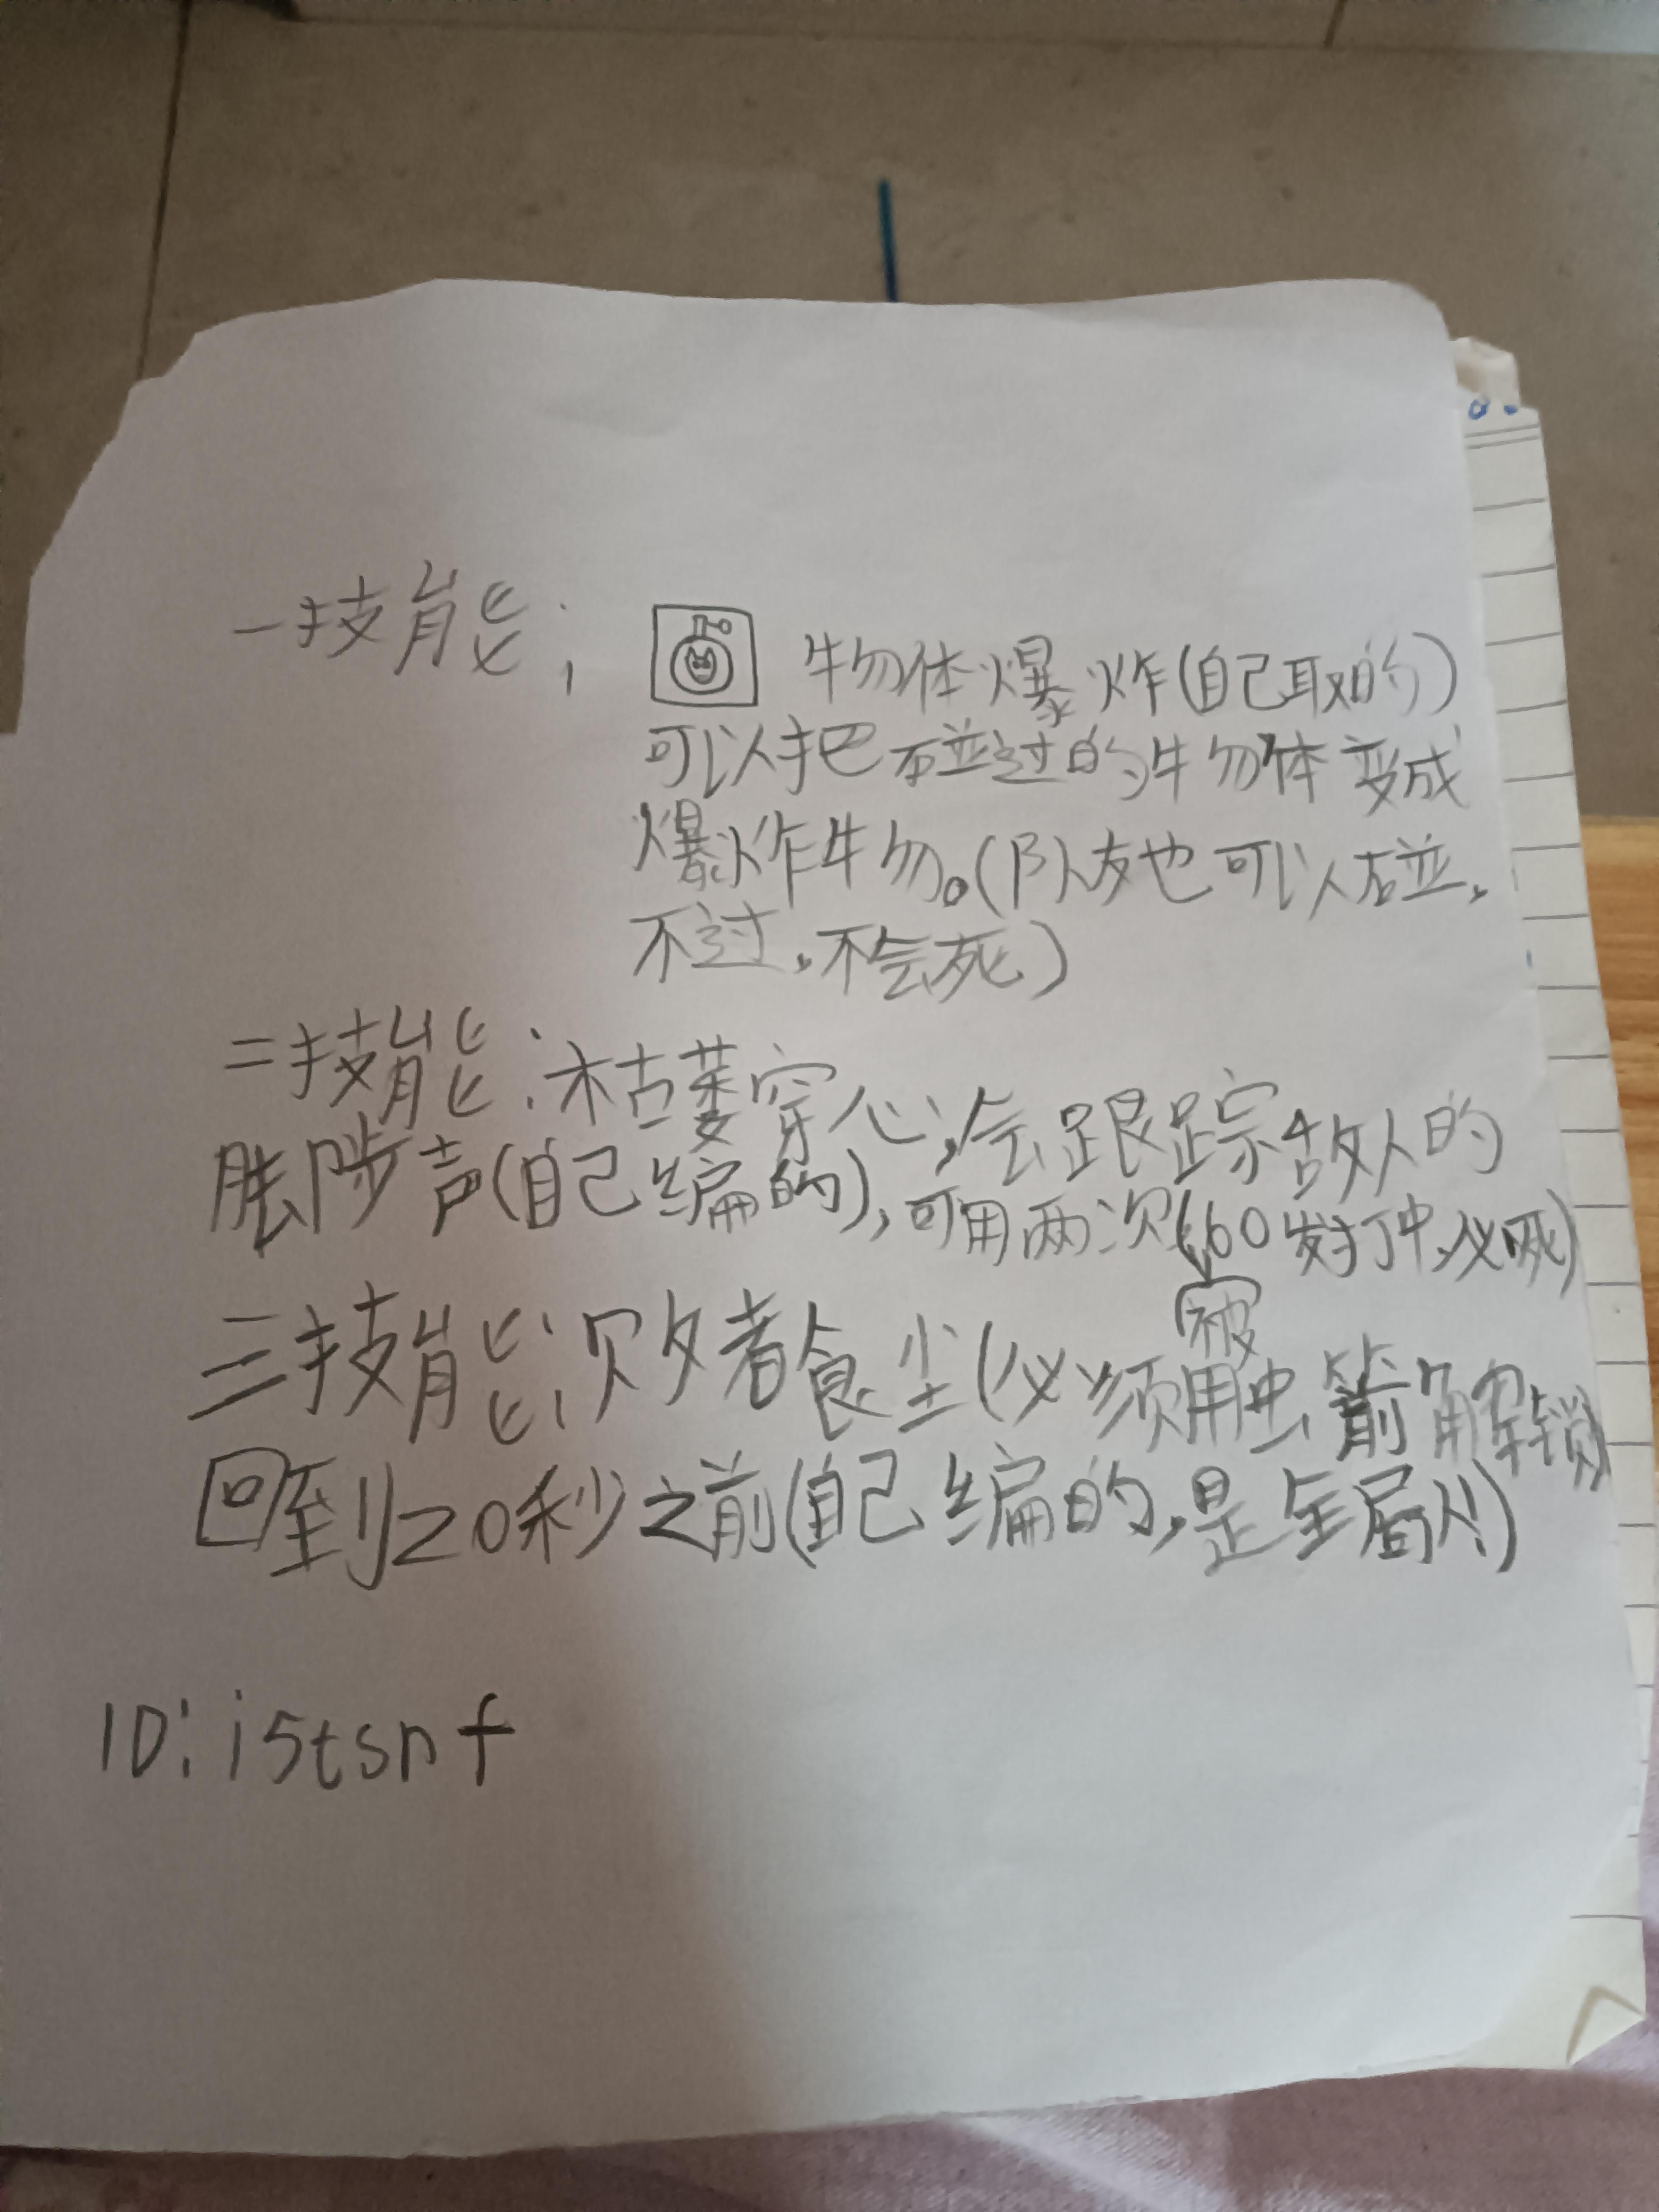 一技能：物体爆炸(自己取的)
可以把碰过的物体变成
爆炸物。(队友也可以碰，
不过，不会死)
二技能：枯蒌穿心，会跟踪敌人的
脚步声(自己编的)，可用两次(60发打中，必死)
三技能：败者食尘(必须被触箭解锁)
回到20秒之前(自己编的，是全局的)
ID：i5tsnf